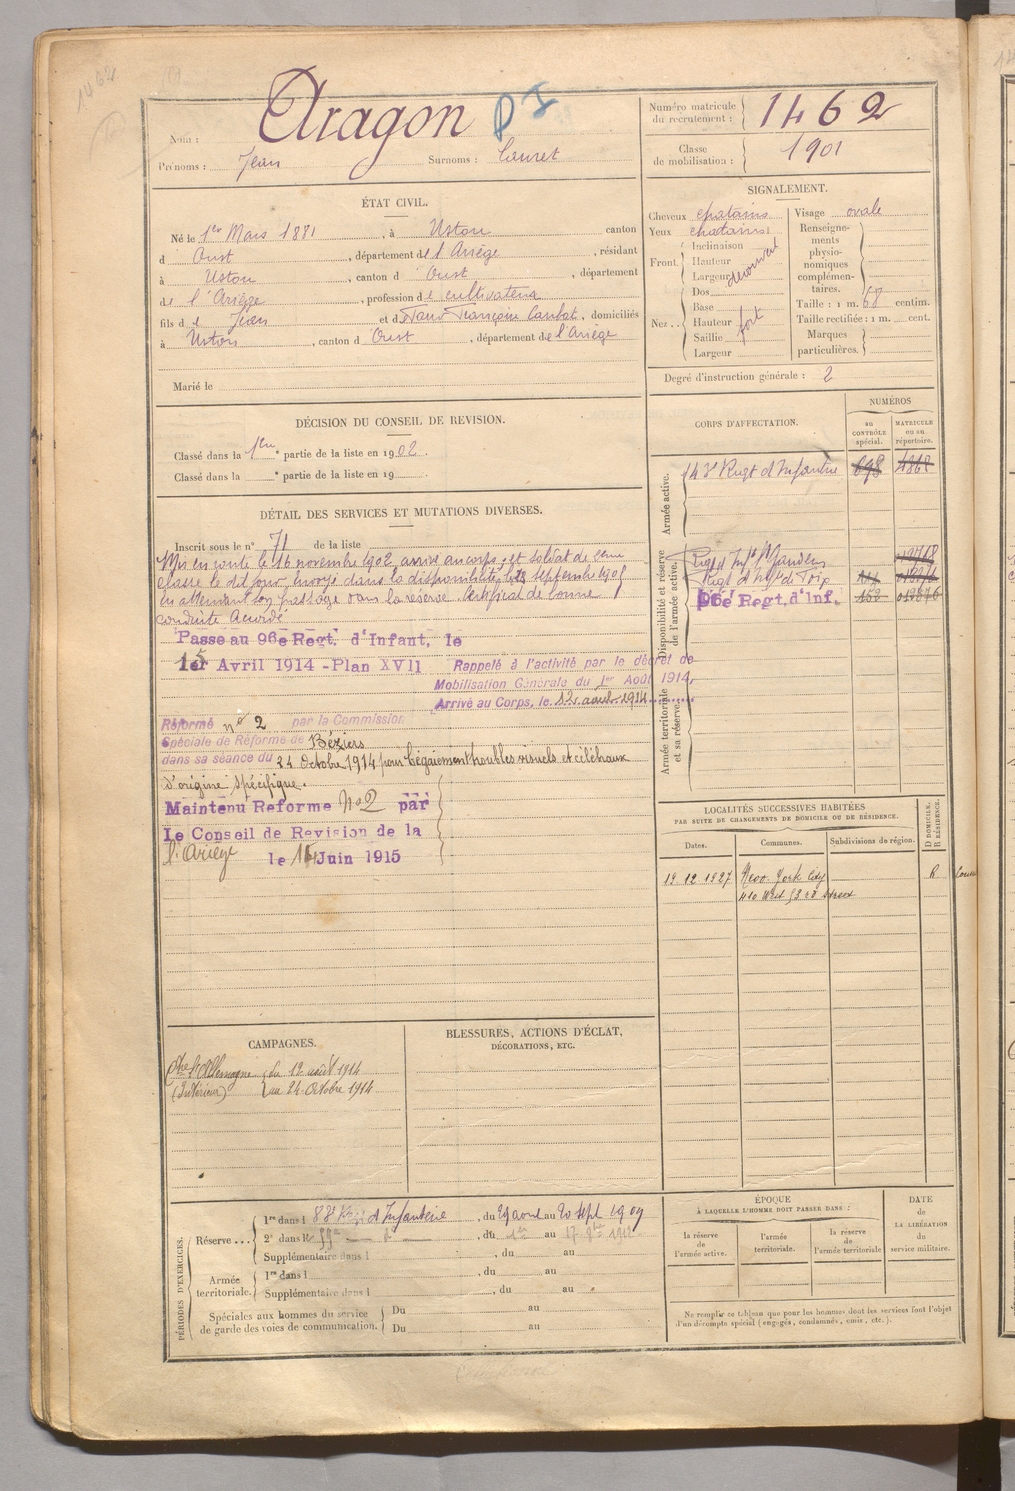 1462
Nom : Aragon
Prénoms : Jean Surnoms : Couret
Numéro matricule du recrutement : 1462
Classe de mobilisation : 1901
ÉTAT CIVIL.
Né le 1er Mars 1881, à Ustou canton
d Oust, département de l'Ariège, résidant
à Ustou, canton d Oust, département
de l'Ariège, profession de cultivateur
fils de Jean et d François Caubet, domiciliés
à Ustou, canton d'Oust, département de l'Ariège
Marié le
SIGNALEMENT.
Cheveux chatains
Yeux chatains
Front. Inclinaison
Hauteur
Largeur découvert
Nez. . Dos
Base
Hauteur fort
Saillie
Largeur
Visage ovale
Renseignements physionomiques complémentaires.
Taille : 1 m. 68 centim.
Taille rectifiée : 1 m. cent.
Marques particulières.
Degré d'instruction générale : 2
DÉCISION DU CONSEIL DE REVISION.
Classé dans la 1ere partie de la liste en 1902.
Classé dans la e partie de la liste en 19
DÉTAIL DES SERVICES ET MUTATIONS DIVERSES.
Inscrit sous le n° 71 de la liste
Mis en route le 16 novembre 1902, arrivé au corps et soldat de 2eme
classe le dit jour. Envoyé dans la disponibilité le septembre 190
en attendant son passage dans la réserve. Certificat de bonne
conduite Accordé
Passé au 96e Regt. d'Infant, le
1er Avril 1914 - Plan XVII
Rappelé à l'activité par le décret de
Mobilisation Générale du 1er Août 1914,
Arrivé au Corps, le 12 août 1914
Réformé n° 2 par la Commission
Spéciale de Réforme de Béziers
dans sa séance du 24 Octobre 1914 pour bégaiement troubles visuels et
d'origine spécifique.
Maintenu Reforme No 2 par
Le Conseil de Revision de la
l'Ariège le Juin 1915
CORPS D'AFFECTATION.
NUMÉROS
au CONTRÔLE spécial.
MATRICULE ou au répertoire.
Armée active.
143e Regt d'Infanterie 698 4868
Disponibilité et réserve de l'armée active.
Regt d'Infie St Gaudens
Regt d'Infie de Foix
96e Regt. d'Inf. 152
Armée territoriale et sa réserve.
LOCALITÉS SUCCESSIVES HABITÉES
PAR SUITE DE CHANGEMENTS DE DOMICILE OU DE RÉSIDENCE.
Dates. Communes. Subdivisions de région. D DOMICILE. R RÉSIDENCE.
19.12.1927 New-York City R
410 West 53rd Street
CAMPAGNES.
Che l'Allemagne du 12 août 1914
(Intérieur) au 24 Octobre 1914
BLESSURES, ACTIONS D'ÉCLAT,
DÉCORATIONS, ETC.
PÉRIODES D'EXERCICES.
Réserve . . . 1re dans l 88e Regt d'Infanterie, du 29 aout au 20 sept 1907
2e dans l 59e d°, du 1er au 17 1912
Supplémentaire dans l , du au
Armée territoriale. 1re dans l , du au
Supplémentaire dans l , du au
Spéciales aux hommes du service de garde des voies de communication. Du au
Du au
ÉPOQUE
À LAQUELLE L'HOMME DOIT PASSER DANS :
la réserve de l'armée active.
l'armée territoriale.
la réserve de l'armée territoriale
DATE DE LA LIBÉRATION du service militaire.
Ne remplir ce tableau que pour les hommes dont les services font l'objet
d'un décompte spécial (engagés, condamnés, omis, etc.).